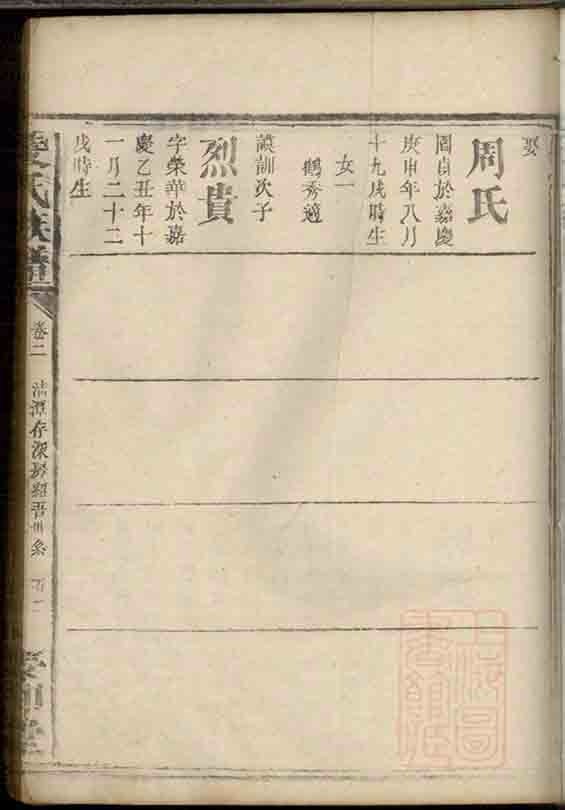 娶
周氏
周貞於嘉慶
庚申年八月
十九戌時生
女一
鶴秀適
謨訓次子
烈貴
字榮華於嘉
慶乙丑年十
一月二十二
戌時生
氏族譜
卷二
上海圖書館藏